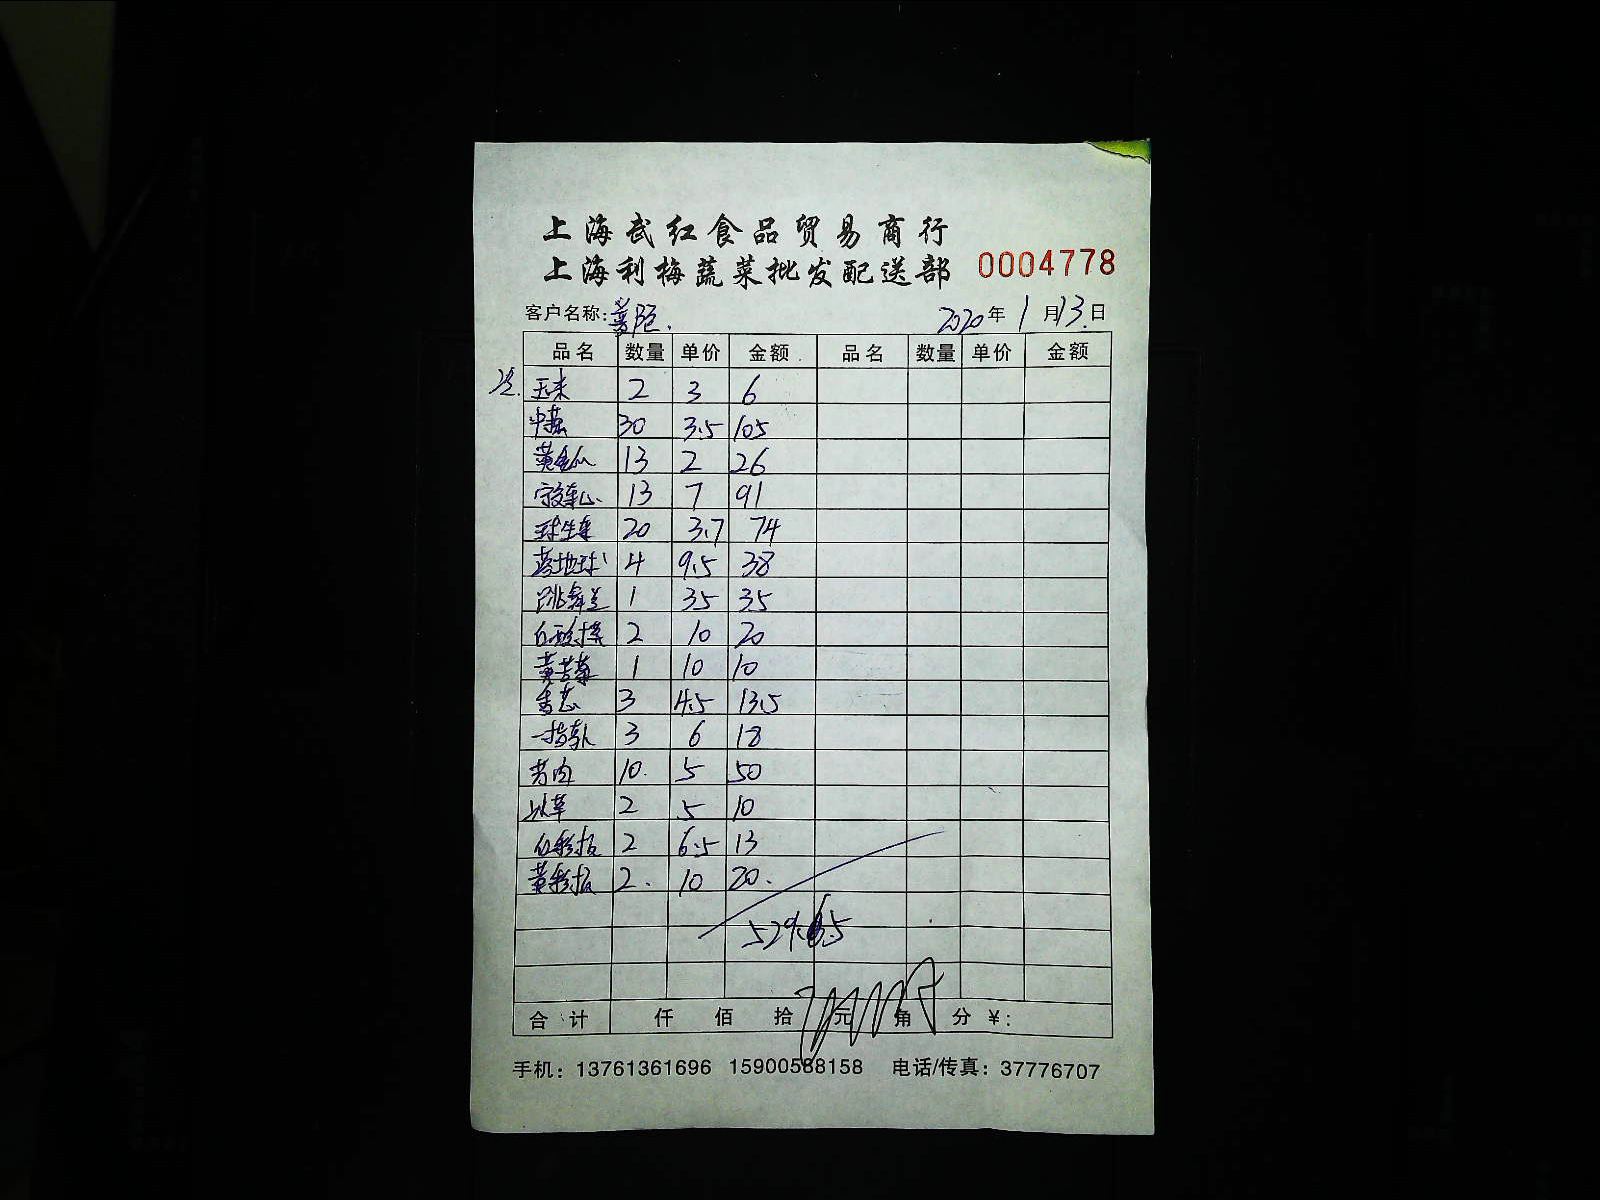 上海武红食品贸易商行
上海利梅蔬菜批发配送部 0004778
客户名称:普陀. 2020年1月13.日
品名 数量 单价 金额 品名 数量 单价 金额
玉米 2 3 6
中菇 30 3.5 105
黄金瓜 13 2 26
13 7 91
球生菜 20 3.7 74
落地球 4 9.5 38
跳舞兰 1 35 35
白玫瑰 2 10 20
黄苦菊 1 10 10
香芯 3 4.5 13.5
3 6 18
芳肉 10. 5 50
2 5 10
白彩椒 2 6.5 13
黄彩椒 2. 10 20.
529.5
合计 仟 佰 拾 元 角 分 ¥:
手机：13761361696 15900588158 电话/传真：37776707